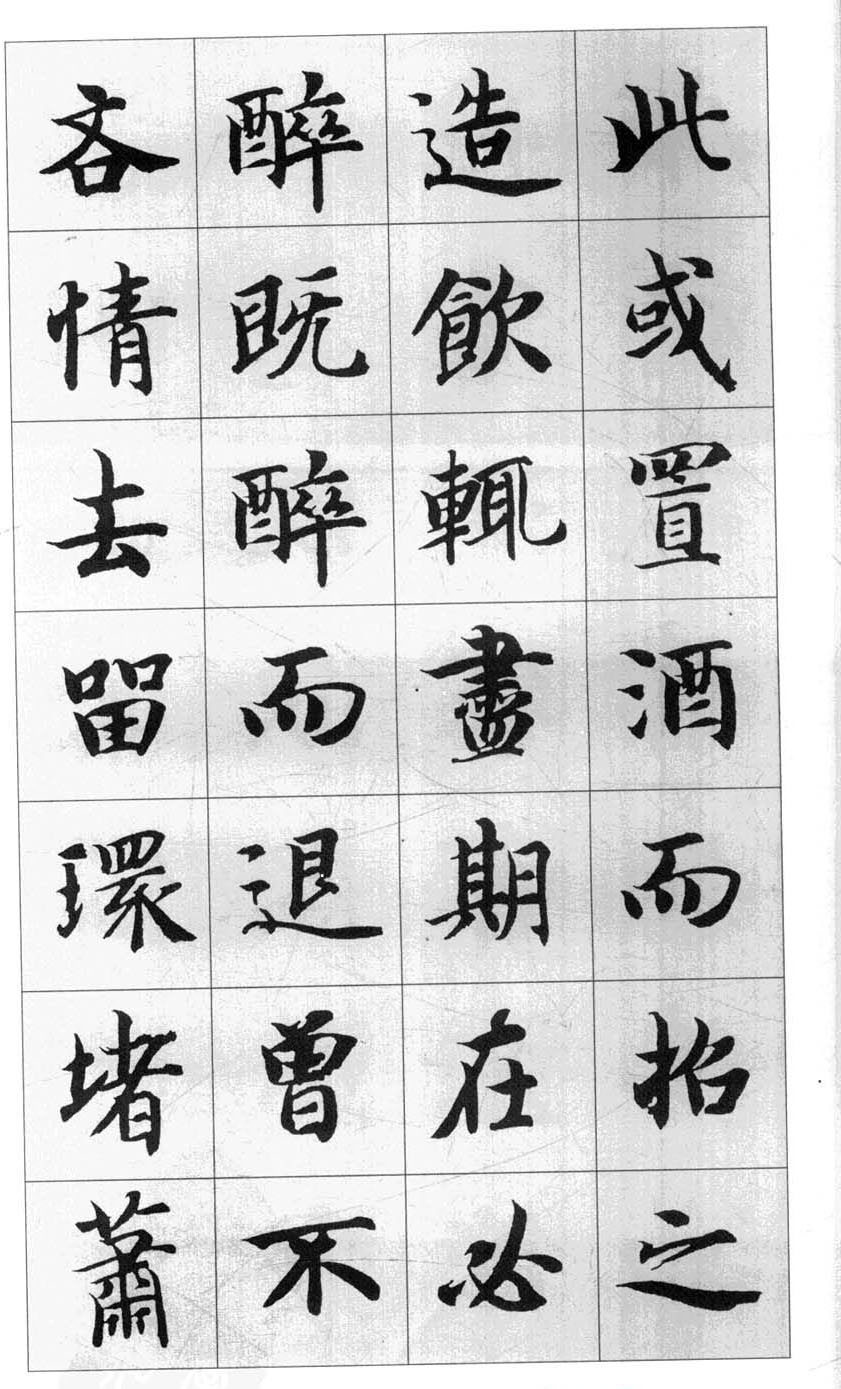 此或置酒而招之
造飲輒盡期在必
醉既醉而退曾不
吝情去留環堵蕭